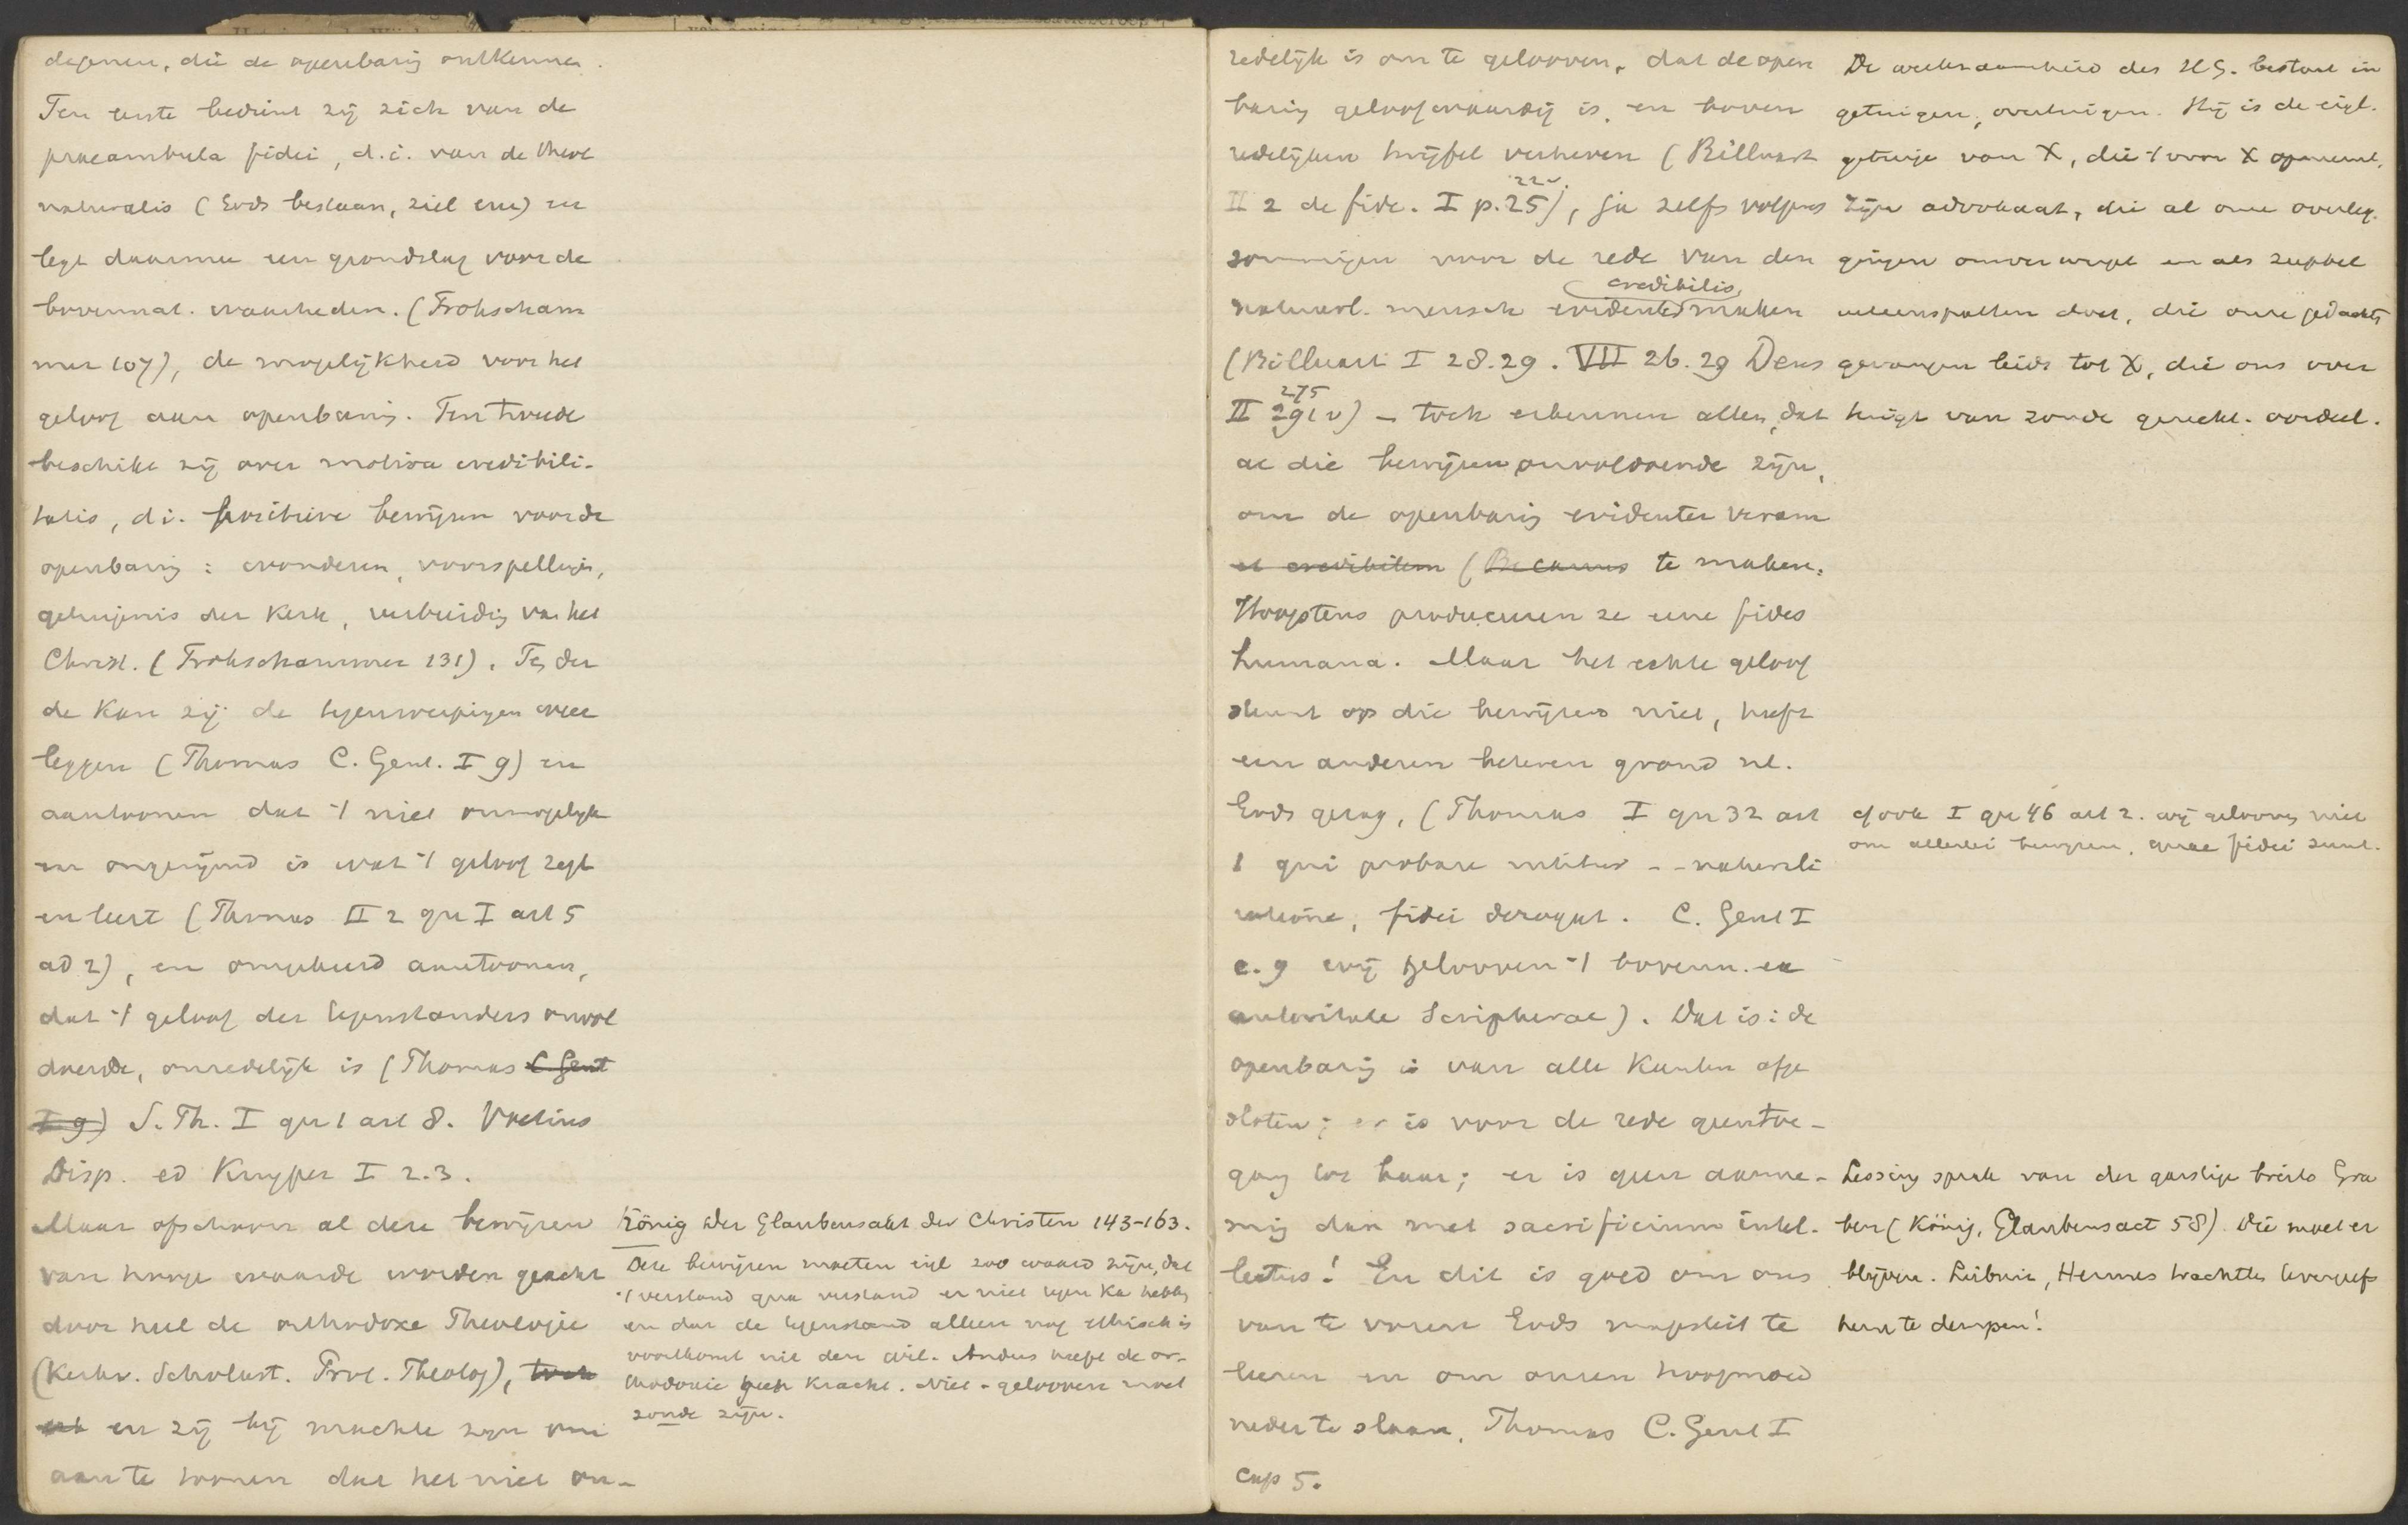 degenen, die de openbarig ontkennen.
Ten eerste bedient zij zich van de
praeambula fidei, d.i. van de theol
naturalis (Gods bestaan, ziel enz) en
legt daarmee een grondslag voor de
bovennat. waarheden. (Frohscham
mer 107), de mogelijkheid voor het
geloof aan openbarig. Ten tweede
beschikt zij over motiva credibili-
tatis, d.i. positieve bewijzen voor de
openbarig: wonderen, voorspelligen,
getuigenis der Kerk, verbreidig van het
Christ. (Frohschammer 131). Ten der
de kan zij de tegenwerpigen weer
leggen (Thomas C. Gent. I 9) en
aantoonen dat 't niet onmogelijk
en ongerijmd is wat 't geloof zegt
en leert (Thomas II 2 qu I art 5
ad 2), en omgekeerd aantoonen,
dat 't geloof der tegenstanders onvol
doende, onredelijk is (Thomas C Gent
I 9) S. Th. I qu 1 art 8. Voetius
Disp. ed Kuyper I 2.3.
Maar ofschoon al deze bewijzen
van hooge waarde worden geacht
door heel de orthodoxe Theologie
(Kerkv. Scholast. Prot. Theolog), toch
en zij bij machte zijn om
aan te toonen dat het niet on-
König Der Glaubensakt der Christen 143-163.
Deze bewijzen moeten eigl zoo waard zijn, dat
't verstand qua verstand er niet tegen kan hebben
en dat de tegenstand alleen nog ethisch is
voortkomt uit den wil. Anders heeft de or-
thodoxie geen kracht. Niet-gelooven moet
zonde zijn.
redelijk is om te gelooven, dat de open
barig geloofwaardig is, en boven
redelijken twijfel verheven (Billuart
II 2 de fide. I p. 25), ja zelfs volgens
sommigen voor de rede van den
credibilis
natuurl. mensch evidenter maken
(Billuart I 28.29. VII 26.29 Dens
275
II 292) - toch erkennen allen, dat
al die bewijzen onvoldoende zijn,
om de openbarig evidenter veram
et credibilem (Becanus te maken.
Hoogstens produceeren ze eene fides
humana. Maar het echte geloof
steunt op die bewijzen niet, heeft
een anderen beteren grond nl.
Gods gezag, (Thomas I qu 32 art
1 qui probare nititur - - naturali
ratione, fidei derogat. C. Gent I
c. 9 wij gelooven 't bovenn. ex
autoritate Scripturae). Dat is: de
openbarig is van alle kanten afge
sloten; er is voor de rede geen toe-
gang tot haar; er is geen aanne-
mig dan met sacrificium intel-
lectus! En dit is goed om ons
van te voren Gods majesteit te
leeren en om onzen hoogmoed
neder te slaan. Thomas C. Gent I
cap 5.
De werkzaamheid des H G. bestaat in
getuigen, overtuigen. Hij is de eigl.
getuige van X, die 't voor X opneemt,
zijn advokaat, die al onze overleg.
gingen omver werpt en als zuppel
uiteenspatten doet, die onze gedachten
gevangen leidt tot X, die ons over
tuigt van zonde gerecht. oordeel.
cf ook I qu 46 art 2. wij gelooven niet
om allerlei bewijzen, quae fidei sunt.
Lessing sprak van der garstige breite Gra
ben (König, Glaubensact 58). Die moet er
blijven. Leibniz, Hermes trachtten tevergeefs
hem te dempen!